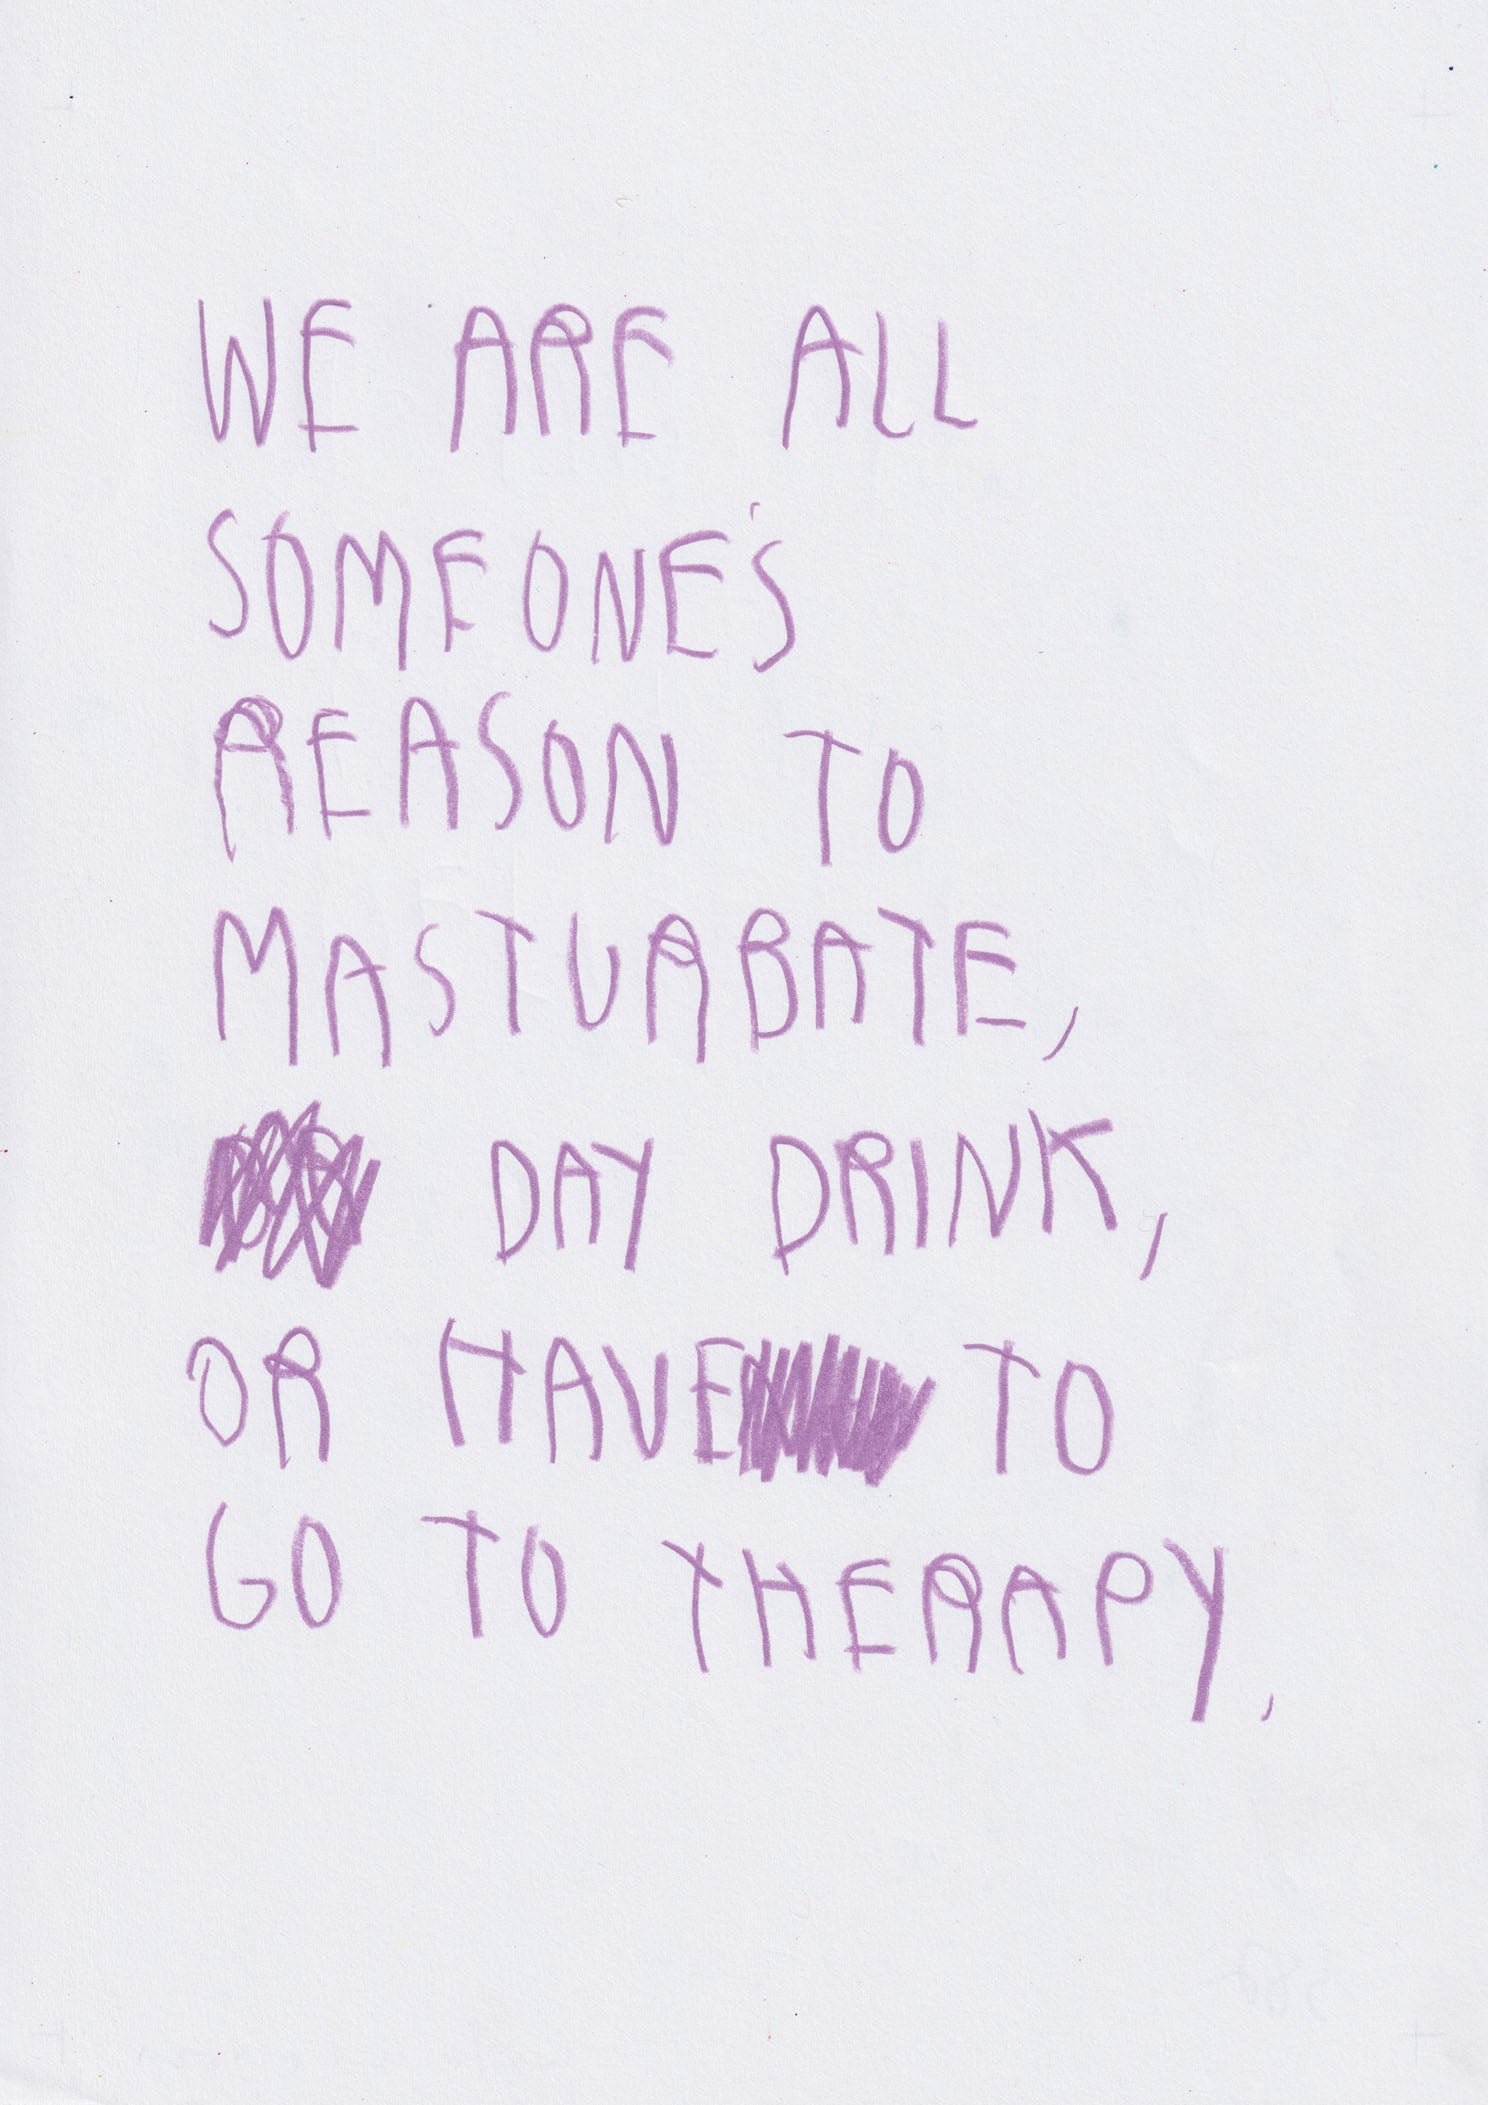 WE ARE ALL
SOMEONE'S
REASON TO
MASTURBATE,
DAY DRINK,
OR HAVE TO
GO TO THERAPY.